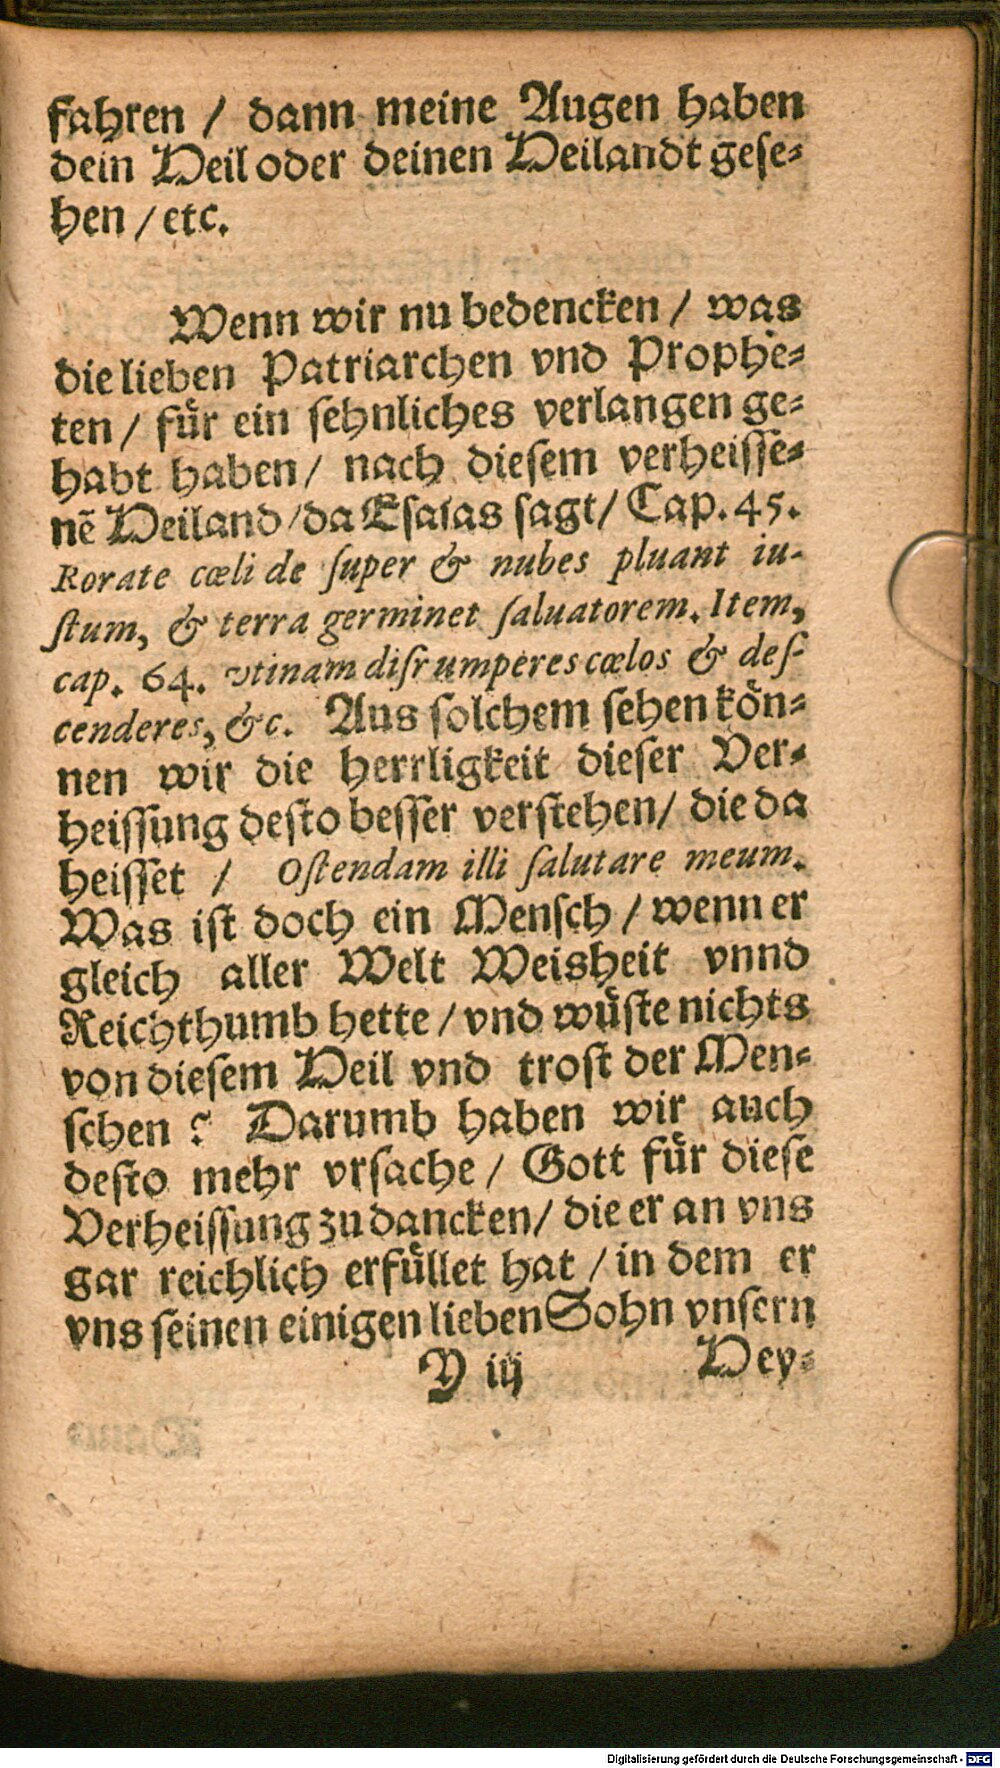 fahren / dann meine Augen haben
dein Heil oder deinen Heilandt gese⸗
hen / etc.
Wenn wir nu bedencken / was
die lieben Patriarchen vnd Prophe⸗
ten / fuͤr ein sehnliches verlangen ge⸗
habt haben / nach diesem verheisse⸗
nē Heiland / da Esaias sagt / Cap. 45.
Rorate cœli de ſuper & nubes pluant iu-
ſtum, & terra germinet ſaluatorem. Item,
cap. 64. vtinam diſrumperes cœlos & deſ-
cenderes, &c. Aus solchem sehen koͤn⸗
nen wir die herrligkeit dieser Ver⸗
heissung desto besser verstehen / die da
heisset / Oſtendam illi ſalutare meum.
Was ist doch ein Mensch / wenn er
gleich aller Welt Weisheit vnnd
Reichthumb hette / vnd wuͤste nichts
von diesem Heil vnd trost der Men⸗
schen ? Darumb haben wir auch
desto mehr vrsache / Gott fuͤr diese
Verheissung zu dancken / die er an vns
gar reichlich erfuͤllet hat / in dem er
vns seinen einigen lieben Sohn vnsern
Y iij Hey⸗
Digitalisierung gefördert durch die Deutsche Forschungsgemeinschaft - DFG